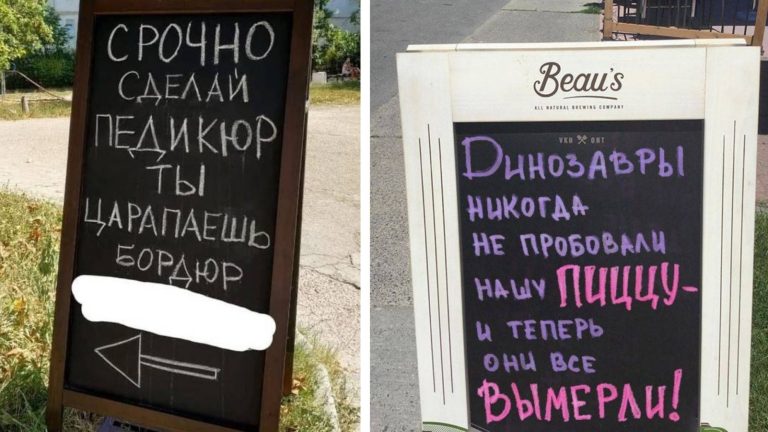 СРОЧНО
СДЕЛАЙ
ПЕДИКЮР
ТЫ
ЦАРАПАЕШЬ
БОРДЮР
Beau's
ALL NATURAL BREWING COMPANY
VKH ONT
DИНОЗАВРЫ
НИКОГДА
НЕ ПРОБОВАЛИ
НАШУ ПИЦЦУ-
И ТЕПЕРЬ
ОНИ ВСЕ
ВЫМЕРЛИ!